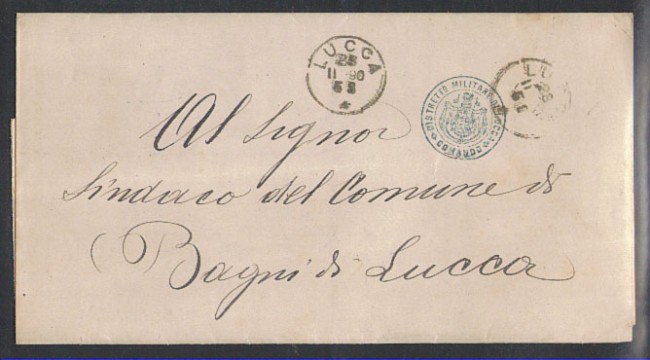 LUCCA
25
11 90
6 S
DISTRETTO MILITARE DI LUCCA
COMANDO
LU
Al Signor
Sindaco del Comune di
Bagni di Lucca